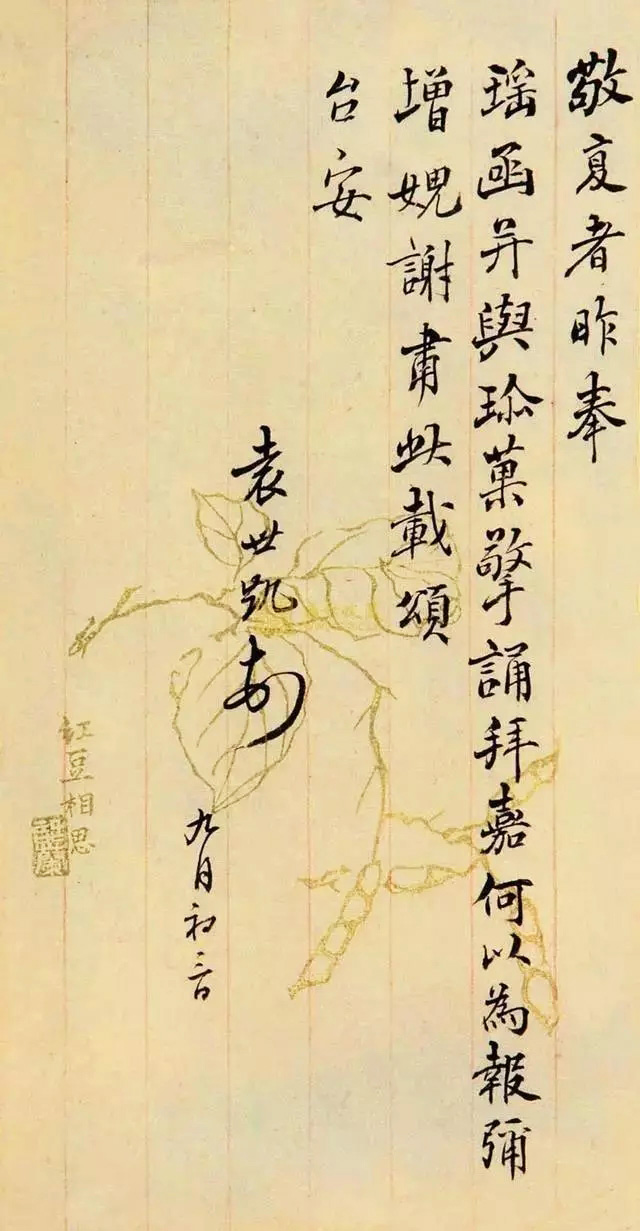 敬复者昨奉
瑶函并與珎菓擎誦拜嘉何以為報彌
增媿謝肅此載頌
台安
袁世凯
九月初三日
红豆相思